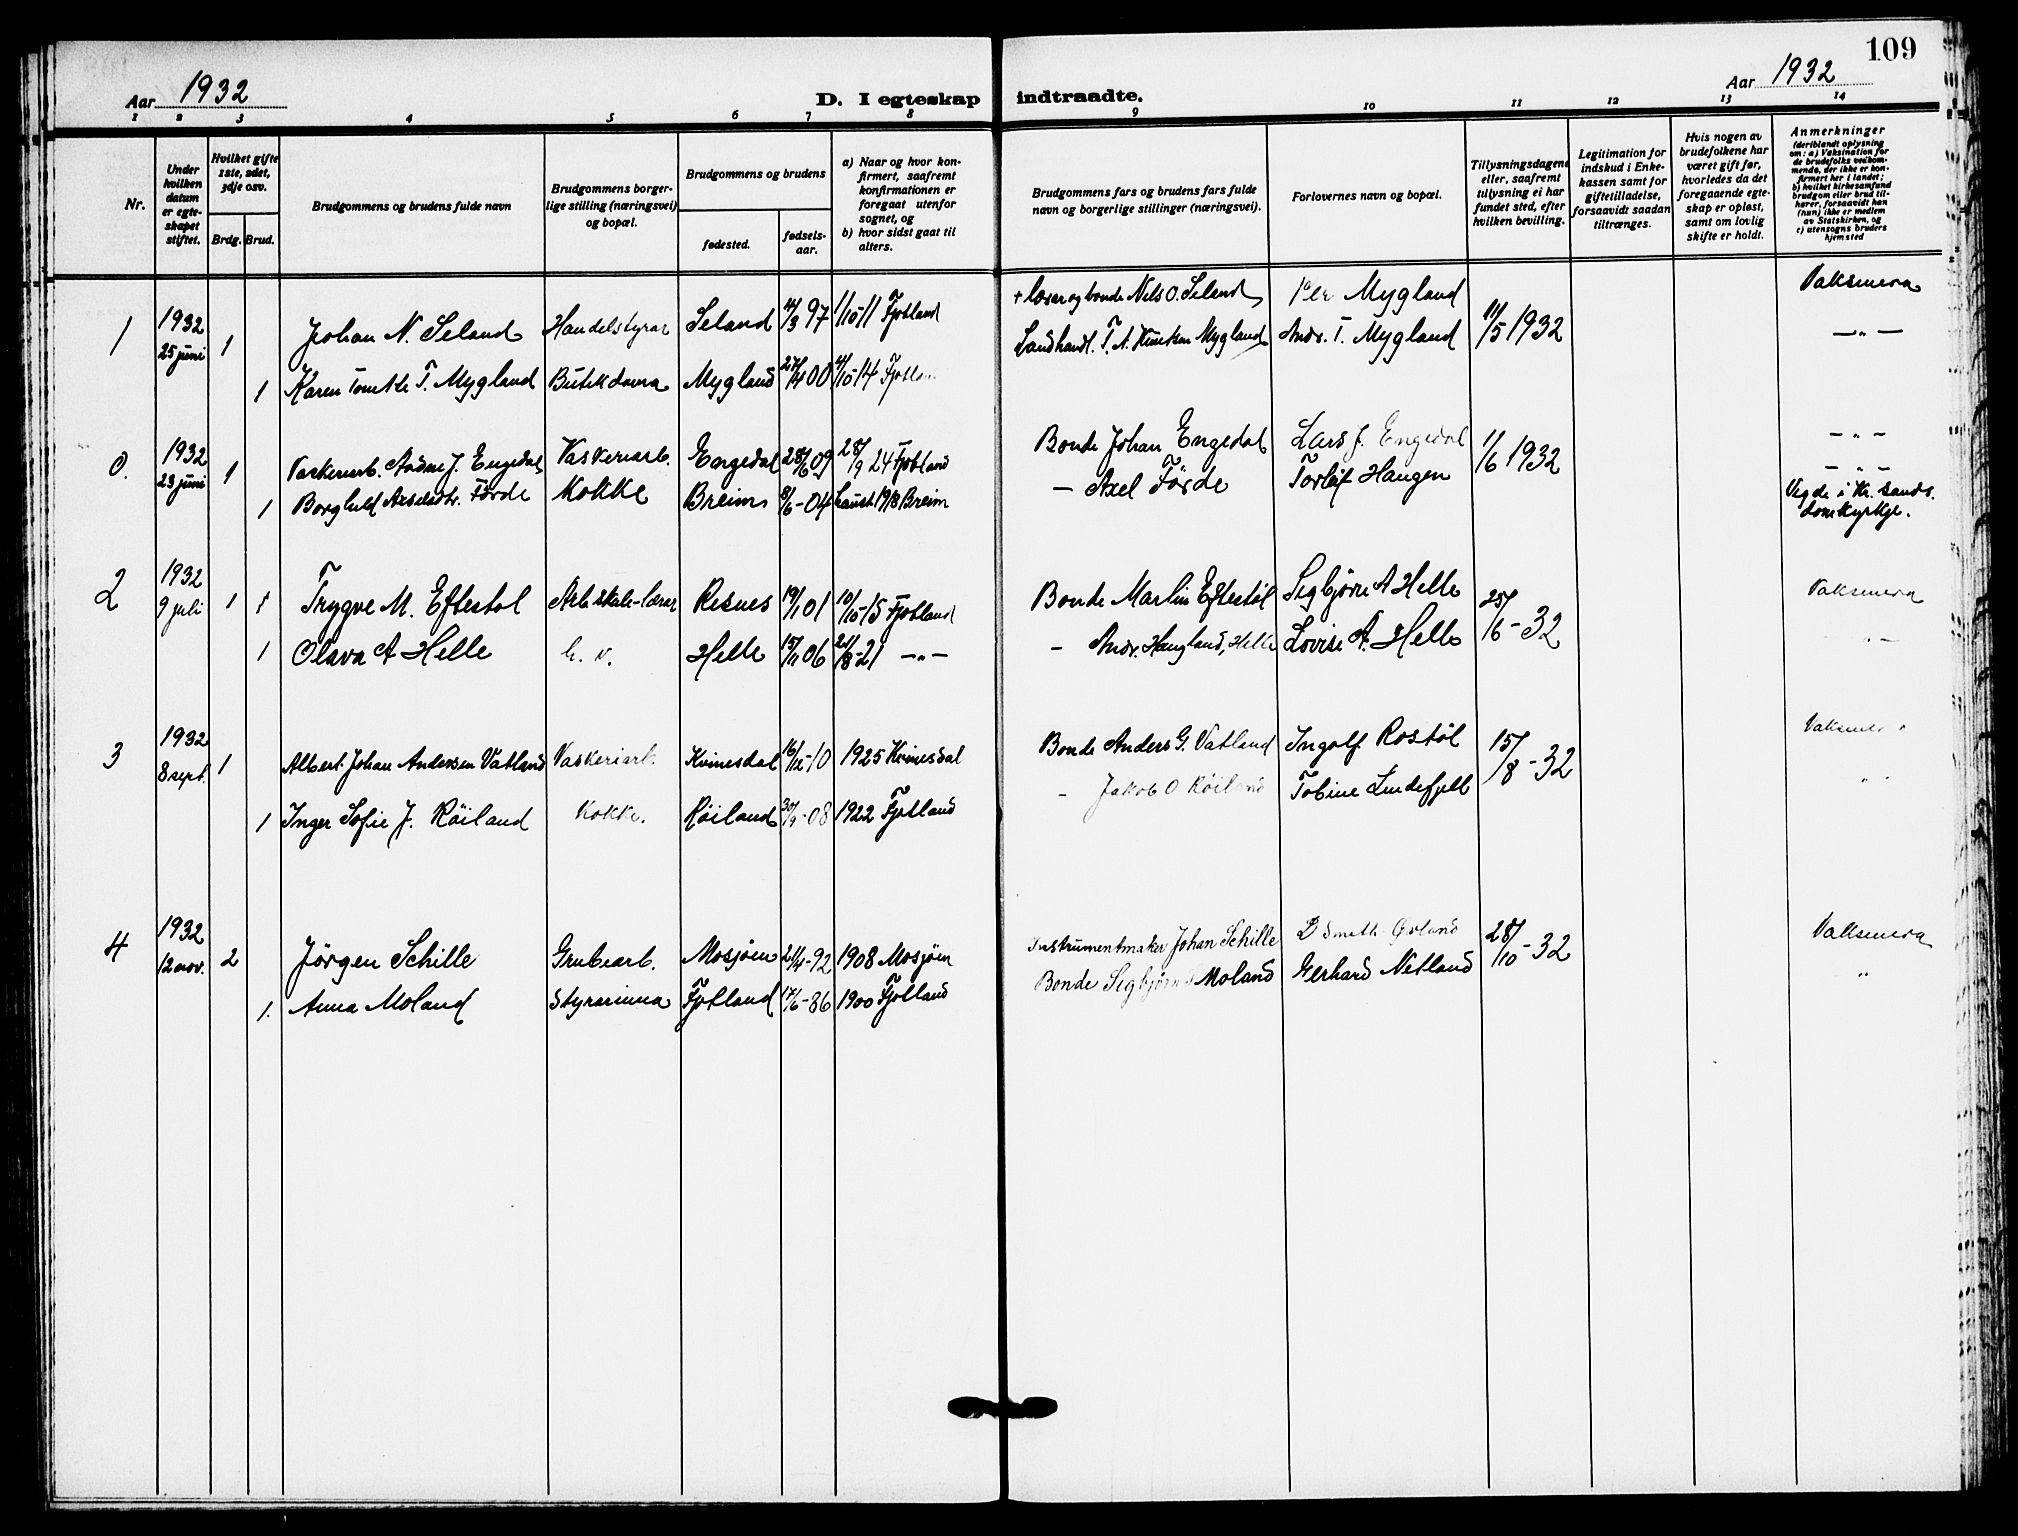 109
Aar 1932
D. I egteskap indtraadte.
Aar 1932
1 2 3 4 5 6 7 8 9 10 11 12 13 14
Nr.
Under hvilken datum er egteskapet stiftet.
Hvilket gifte 1ste, 2det, 3dje osv.
Brdg. Brud.
Brudgommens og brudens fulde navn
Brudgommens borgerlige stilling (næringsvei) og bopæl.
Brudgommens og brudens
fødested.
fødselsaar.
a) Naar og hvor konfirmert, saafremt konfirmationen er foregaat utenfor sognet, og
b) hvor sidst gaat til alters.
Brudgommens fars og brudens fars fulde navn og borgerlige stillinger (næringsvei).
Forlovernes navn og bopæl.
Tillysningsdagene eller, saafremt tillysning ei har fundet sted, efter hvilken bevilling.
Legitimation for indskud i Enkekassen samt for giftetilladelse, forsaavidt saadan tiltrænges.
Hvis nogen av brudefolkene har været gift før, hvorledes da det foregaaende egteskap er opløst, samt om lovlig skifte er holdt.
Anmerkninger (deriblandt oplysning om: a) Vaksination for de brudefolks vedkommende, der ikke er konfirmert her i landet; b) hvilket kirkesamfund brudgom eller brud tilhører, forsaavidt han (hun) ikke er medlem av Statskirken, og c) utensogns bruders hjemsted
1 1932 25 juni 1 Johan N. Seland Handelstyrar Seland 14/3 97 1/10-11 Fjotland + lærar og bonde Nils O. Seland Per Mygland 11/5 1932 Vaksinera
1 Karen T. Mygland Butikdama Mygland 27/4 00 4/10-14 Landhandl. T. A. Mygland Andr. T. Mygland — " —
0. 1932 23 juni 1 Vaskeriarb. J. Engedal Vaskeriarb. Engedal 28/6 09 28/9 24 Fjotland Bonde Johan Engedal Lars J. Engedal 1/6 1932 — " —
1 Borghild Førde Kokke Breim 8/6-04 haust 1918 Breim — Axel Førde Torleif Haugen — " —
Vigde i Kr. sands. domkyrkje.
2 1932 9 juli 1 1 Trygve M. Eftestøl Arb.skule-lærar Risnes 19/1 01 10/10-15 Fjotland Bonde Martin Eftestøl Sigbjørn A Helle 25/6-32 Vaksinera
1 Olava A Helle h. v. Helle 15/11 06 21/8-21 — " — — Andr. Haugland, Helle Lovise A. Helle " —
3 1932 8 sept. 1 Albert Johan Andersen Vatland Vaskeriarb. Kvinesdal 16/12-10 1925 Kvinesdal Bonde Anders G. Vatland Ingolf Rostøl 15/8-32 Vaksinera
1 Inger Sofie J. Røiland Kokke. Røiland 30/9-08 1922 Fjotland — Jakob O Røiland Tobine Lindefjell " "
4 1932 12 nov. 2 Jørgen Schille Grubearb. Mosjøen 21/4-92 1908 Mosjøen Instrumentmaker Johan Schille D Smith-Ørland 28/10-32 Vaksinera
1. Anna Moland Styrarinna Fjotland 17/6-86 1900 Fjotland Bonde Sigbjørn Moland Gerhard Netland "